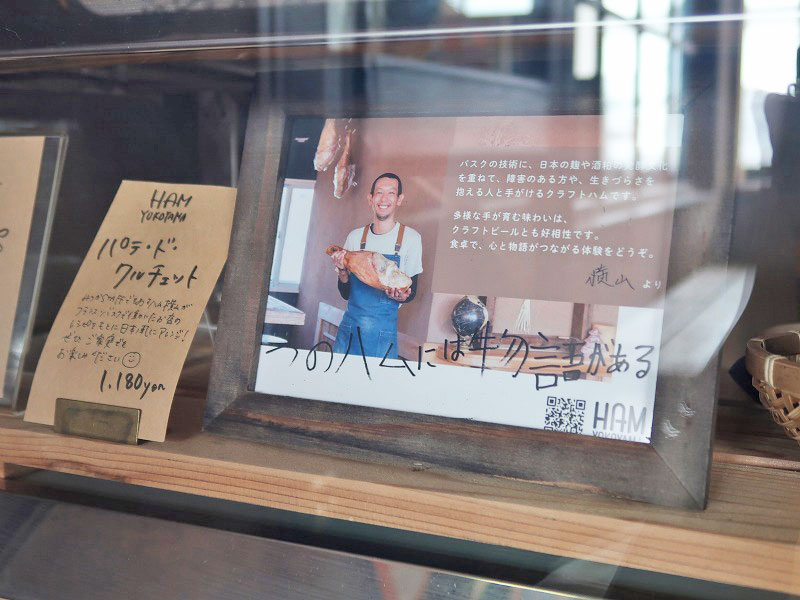 HAM
YOKOYAMA
パテ・ド・
クルチェット
ぜひご賞味を
お楽しみください
1,180yen
バスクの技術に、日本の麹や酒粕の
を重ねて、障害のある方や、生きづらさを
抱える人と手がけるクラフトハムです。
多様な手が育む味わいは、
クラフトビールとも好相性です。
食卓で、心と物語がつながる体験をどうぞ。
横山 より
つのハムには物語がある
HAM
YOKOYAMA